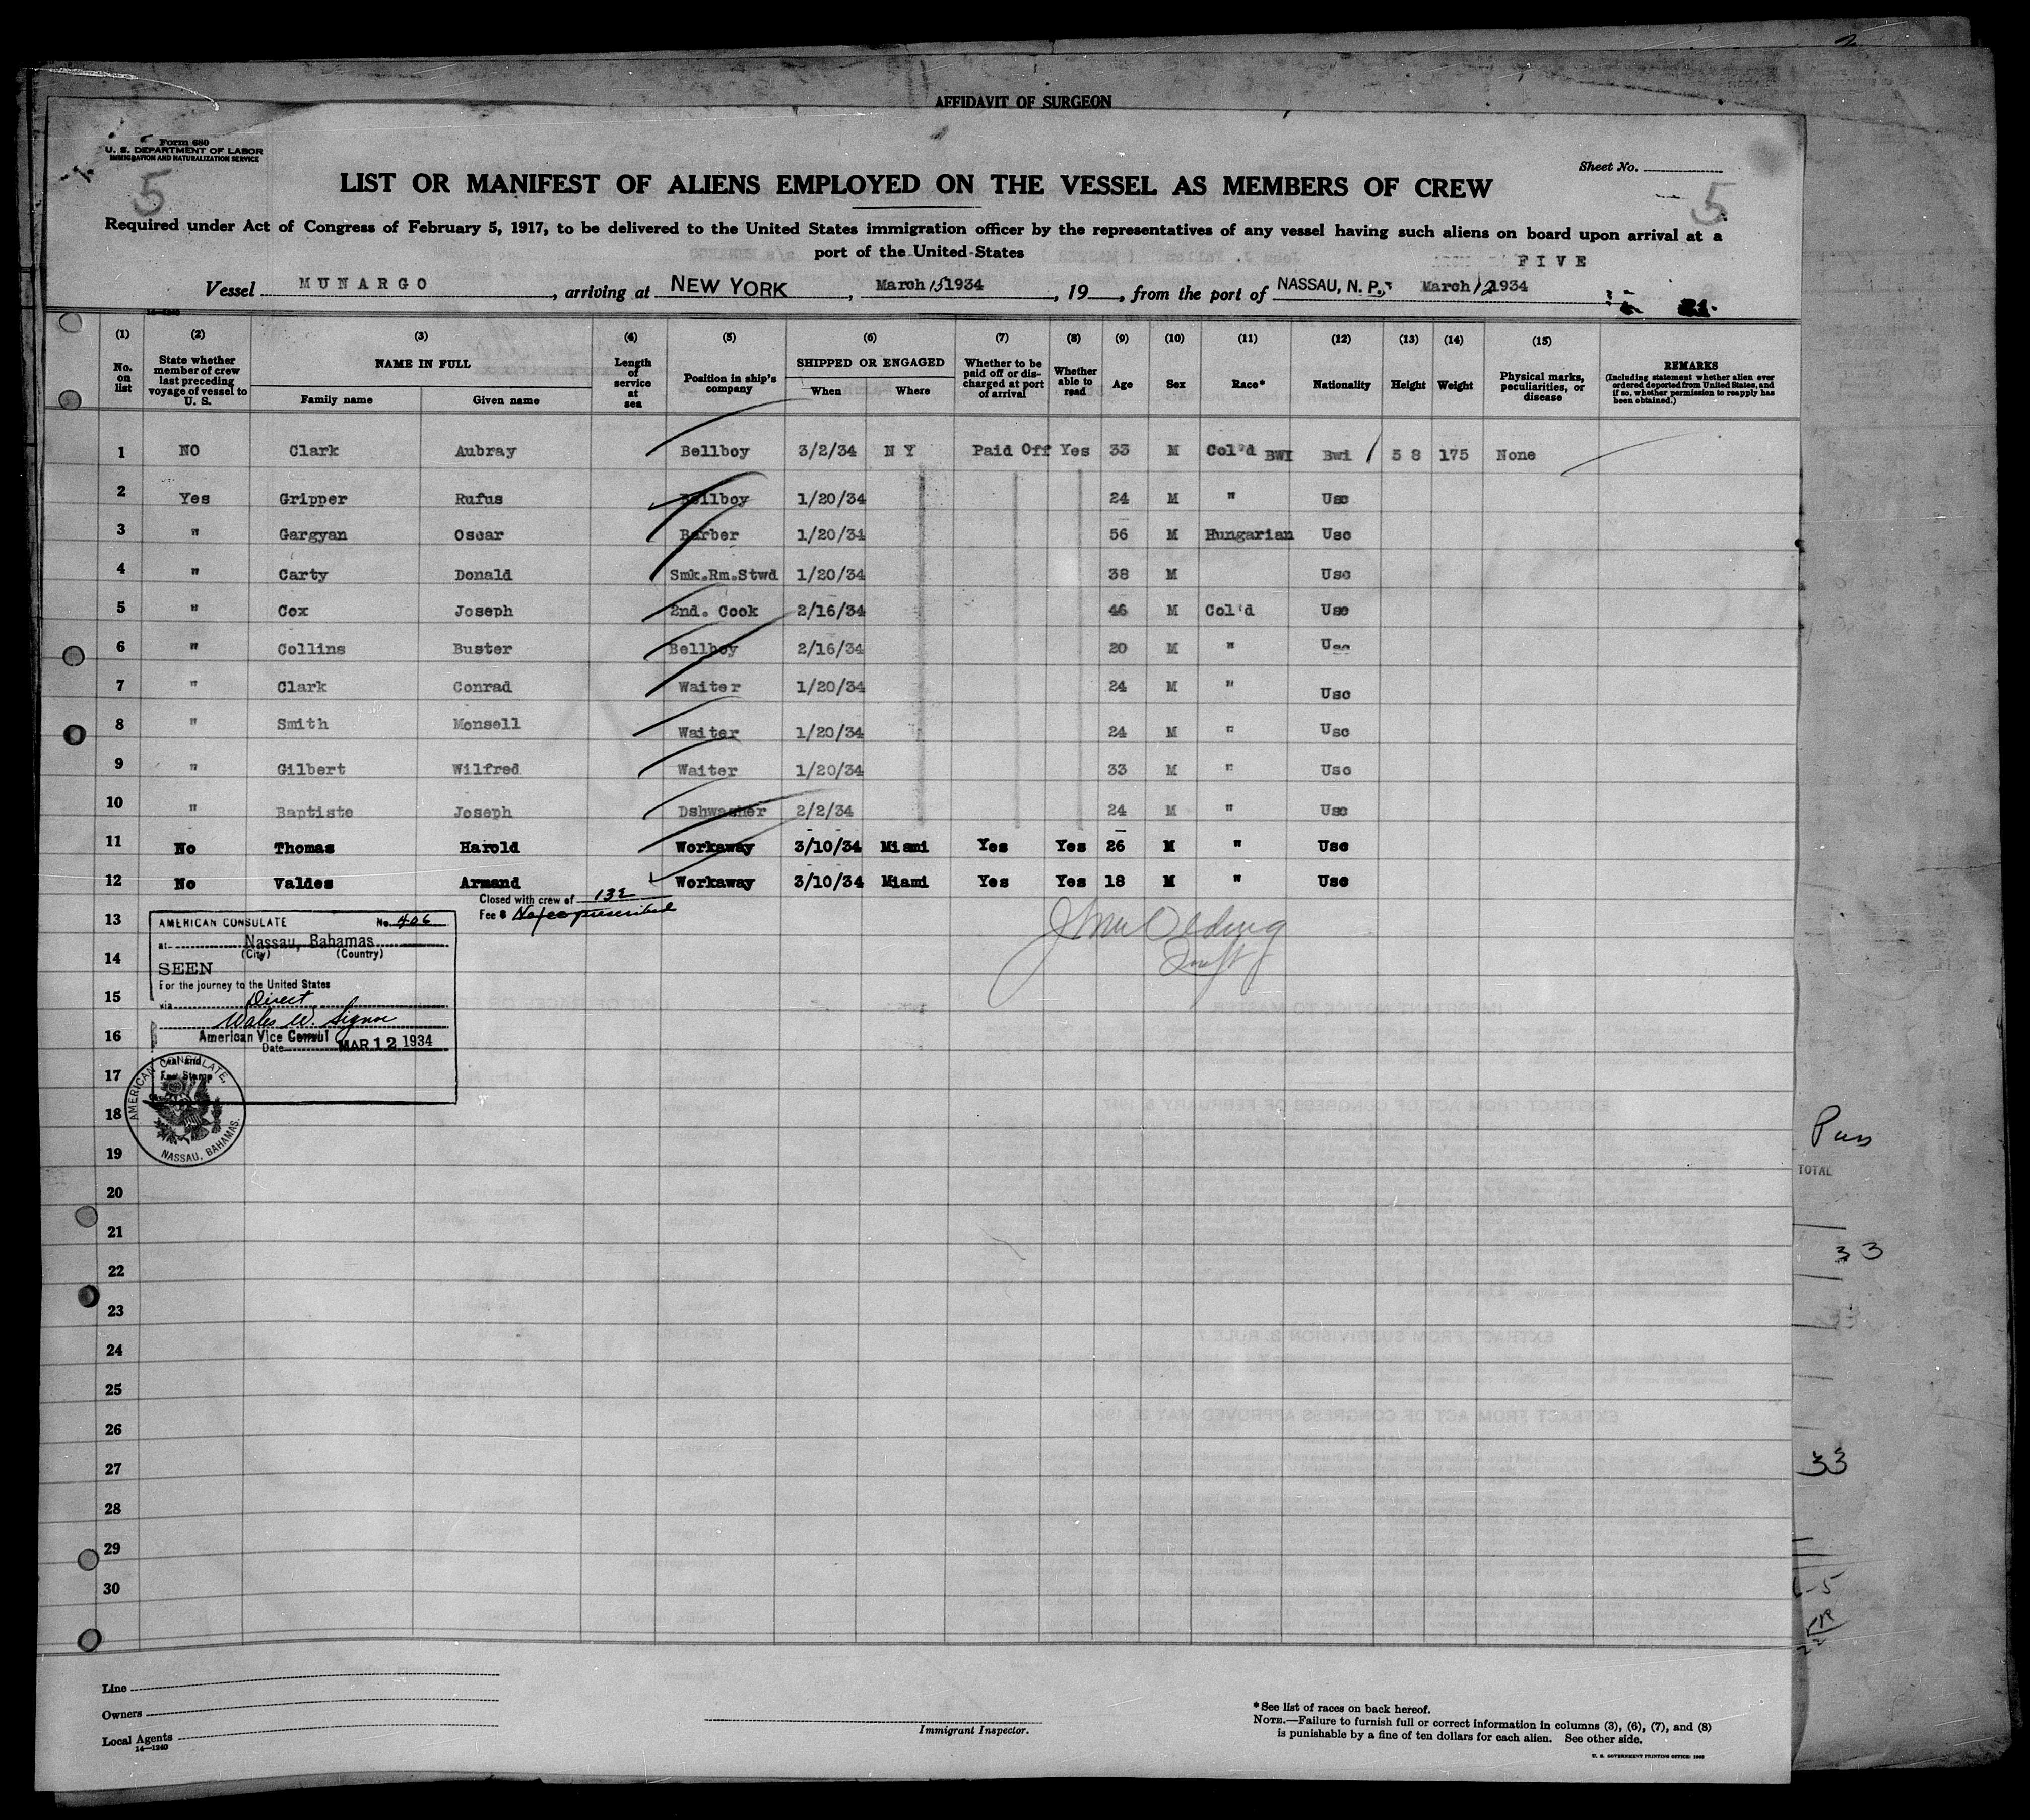 AFFIDAVIT OF SURGEON
Form 680
U. S. DEPARTMENT OF LABOR
IMMIGRATION AND NATURALIZATION SERVICE
5
Sheet No.
5
LIST OR MANIFEST OF ALIENS EMPLOYED ON THE VESSEL AS MEMBERS OF CREW
Required under Act of Congress of February 5, 1917, to be delivered to the United States immigration officer by the representatives of any vessel having such aliens on board upon arrival at a
port of the United States
FIVE
Vessel MUNARGO, arriving at NEW YORK, March 15 1934, 19__, from the port of NASSAU, N. P., March 12 1934
14-1240
(1) (2) (3) (4) (5) (6) (7) (8) (9) (10) (11) (12) (13) (14) (15)
No. on list
State whether member of crew last preceding voyage of vessel to U. S.
NAME IN FULL
Family name Given name
Length of service at sea
Position in ship's company
SHIPPED OR ENGAGED
When Where
Whether to be paid off or discharged at port of arrival
Whether able to read
Age Sex Race* Nationality Height Weight
Physical marks, peculiarities, or disease
REMARKS
(Including statement whether alien ever ordered deported from United States, and if so, whether permission to reapply has been obtained.)
1 NO Clark Aubray Bellboy 3/2/34 N Y Paid Off Yes 33 M Col'd BWI Bwi 5 8 175 None
2 Yes Gripper Rufus Bellboy 1/20/34 24 M " Usc
3 " Gargyan Oscar Barber 1/20/34 56 M Hungarian Usc
4 " Carty Donald Smk.Rm.Stwd 1/20/34 38 M Usc
5 " Cox Joseph 2nd. Cook 2/16/34 46 M Col'd Usc
6 " Collins Buster Bellboy 2/16/34 20 M " Usc
7 " Clark Conrad Waiter 1/20/34 24 M " Usc
8 " Smith Monsell Waiter 1/20/34 24 M " Usc
9 " Gilbert Wilfred Waiter 1/20/34 33 M " Usc
10 " Baptiste Joseph Dshwasher 2/2/34 24 M " Usc
11 No Thomas Harold Workaway 3/10/34 Miami Yes Yes 26 M " Usc
12 No Valdes Armand Workaway 3/10/34 Miami Yes Yes 18 M " Usc
Closed with crew of 132
Fee $ No fee prescribed
13
AMERICAN CONSULATE No. 406
at Nassau, Bahamas
(City) (Country)
14
SEEN
For the journey to the United States
15
via Direct
Wales W. Signor
16
American Vice Consul
Date MAR 12 1934
17
Seal and
Fee Stamp
AMERICAN CONSULATE,
NASSAU, BAHAMAS.
18
19
20
21
22
23
24
25
26
27
28
29
30
TOTAL
33
33
Line
Owners
Local Agents
14-1240
Immigrant Inspector.
*See list of races on back hereof.
NOTE.—Failure to furnish full or correct information in columns (3), (6), (7), and (8)
is punishable by a fine of ten dollars for each alien. See other side.